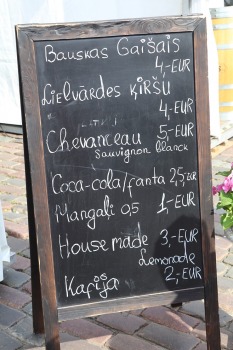 Bauskas Gaišais
4,-EUR
Lielvārdes ķiršu
4,-EUR
Chevanceau 5,-EUR
Sauvignon blanck
Coca-cola/fanta 2,5 EUR
Mangaļi 0,5 1,-EUR
House made 3,-EUR
Lemonade
Kafija 2,-EUR